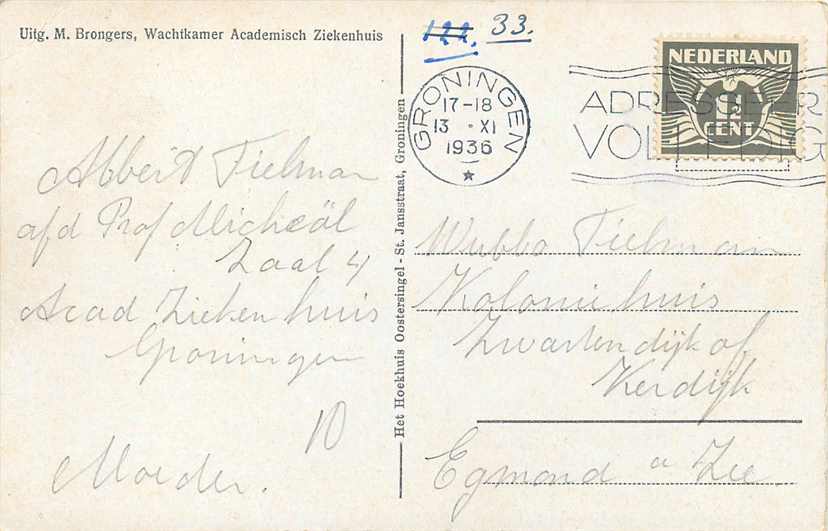 Uitg. M. Brongers, Wachtkamer Academisch Ziekenhuis
Albbert Tielman
afd Prof Micheäl
Zaal 4
Acad Ziekenhuis
Groningen
10
Moeder.
Het Hoekhuis Oostersingel - St. Jansstraat, Groningen
122. 33.
GRONINGEN
17-18
13 · XI
1936
ADRESSEER
VOLLEDIG
NEDERLAND
1½
CENT
Wubbo Tielman
Koloniehuis
Zwartendijk of
Kerdijk
Egmond a Zee.